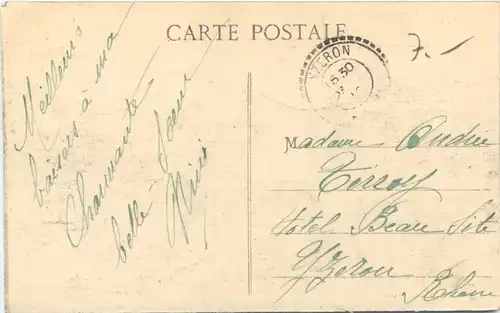 CARTE POSTALE
7.-
YZERON
Meilleurs
baisers à ma
Charmante
belle Soeur
Mimi
Madame Andrée
Terroy
Hotel Beau Site
Yzeron
Rhône